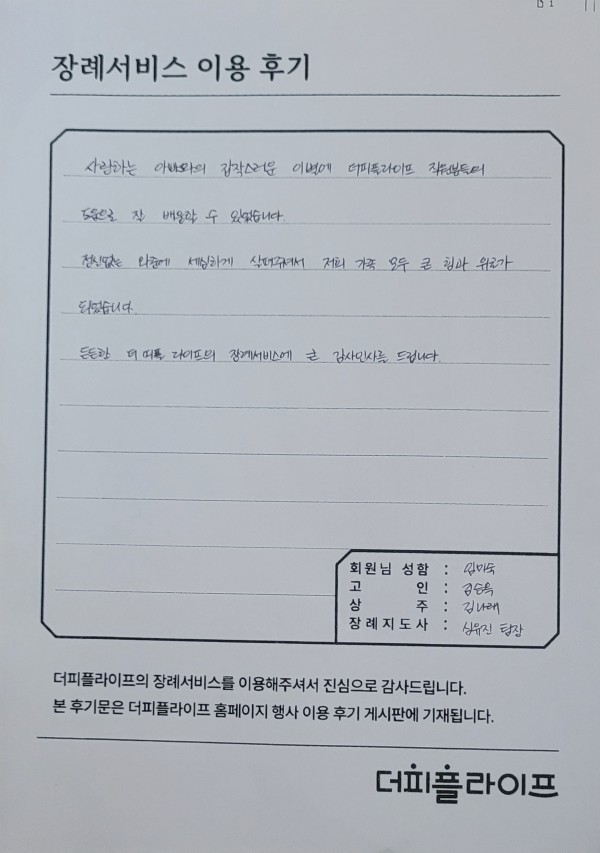 장례서비스 이용 후기
사랑하는 아빠와의 갑작스러운 이별에 더피플라이프 직원분들의
도움으로 잘 배웅할 수 있었습니다.
정신없는 와중에 세심하게 살펴주셔서 저희 가족 모두 큰 힘과 위로가
되었습니다.
든든한 더 피플 라이프의 장례서비스에 큰 감사인사를 드립니다.
회원님 성함 : 임미숙
고 인 :
상 주 : 김나래
장례지도사 : 심유진 팀장
더피플라이프의 장례서비스를 이용해주셔서 진심으로 감사드립니다.
본 후기문은 더피플라이프 홈페이지 행사 이용 후기 게시판에 기재됩니다.
더피플라이프